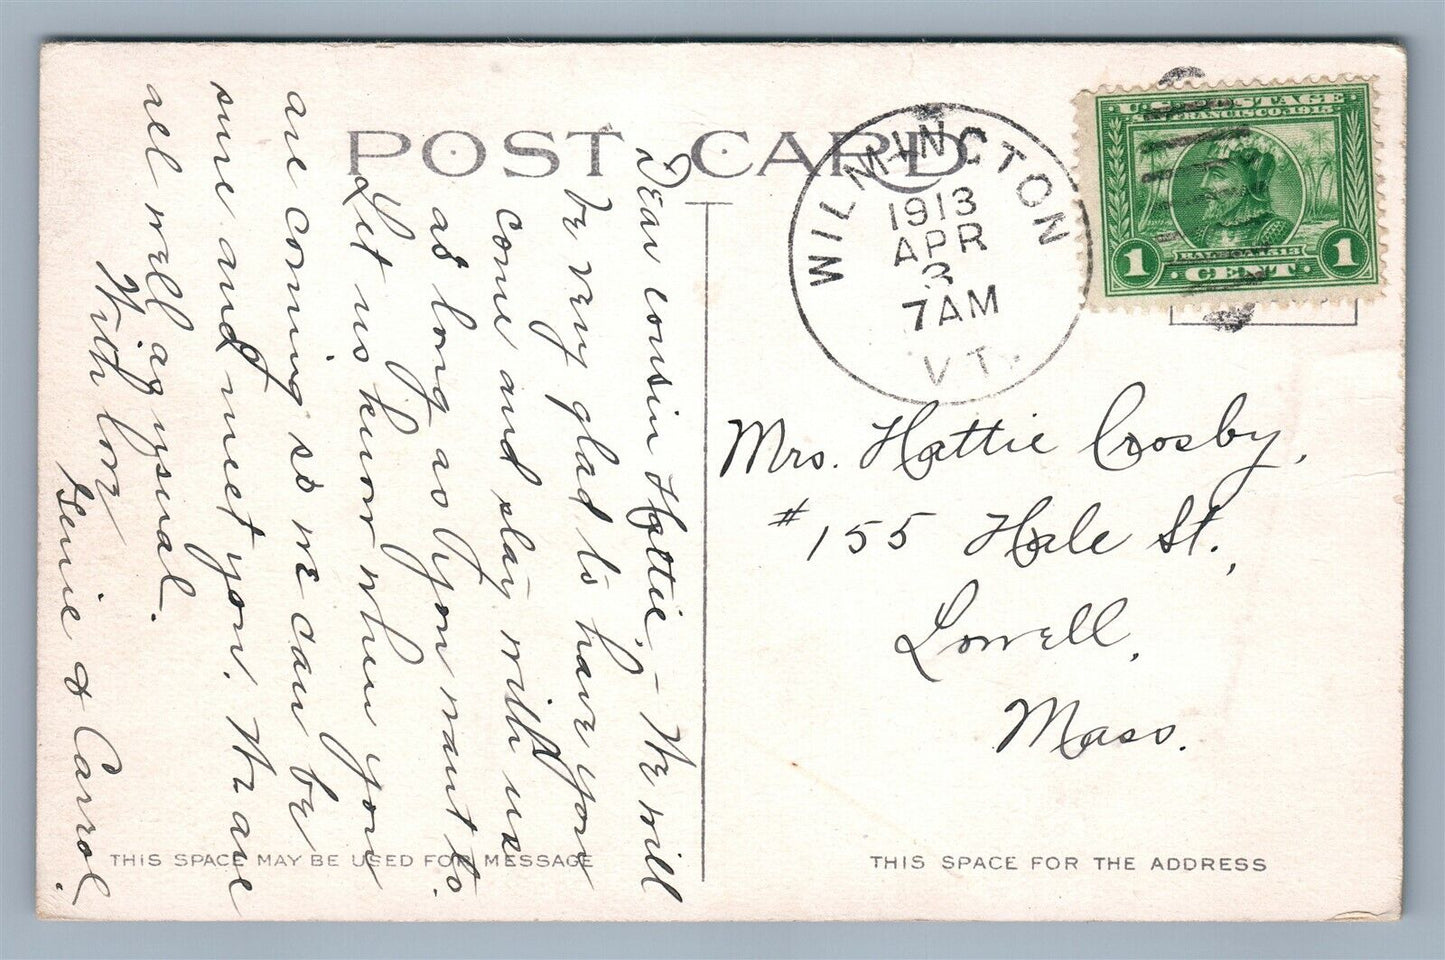 POST CARD
WILMINGTON
1913
APR
3
7AM
VT.
U.S. POSTAGE
SAN FRANCISCO, 1915
BALBOA 1513
1 CENT 1
Dear Cousin Hattie, - We will
be very glad to have you
come and stay with us
as long as you want to.
Let us know when you
are coming so we can be
sure and meet you. We are
all well as usual.
With love
Genie & Carrol.
Mrs. Hattie Crosby,
#155 Hale St.,
Lowell,
Mass.
THIS SPACE MAY BE USED FOR MESSAGE
THIS SPACE FOR THE ADDRESS